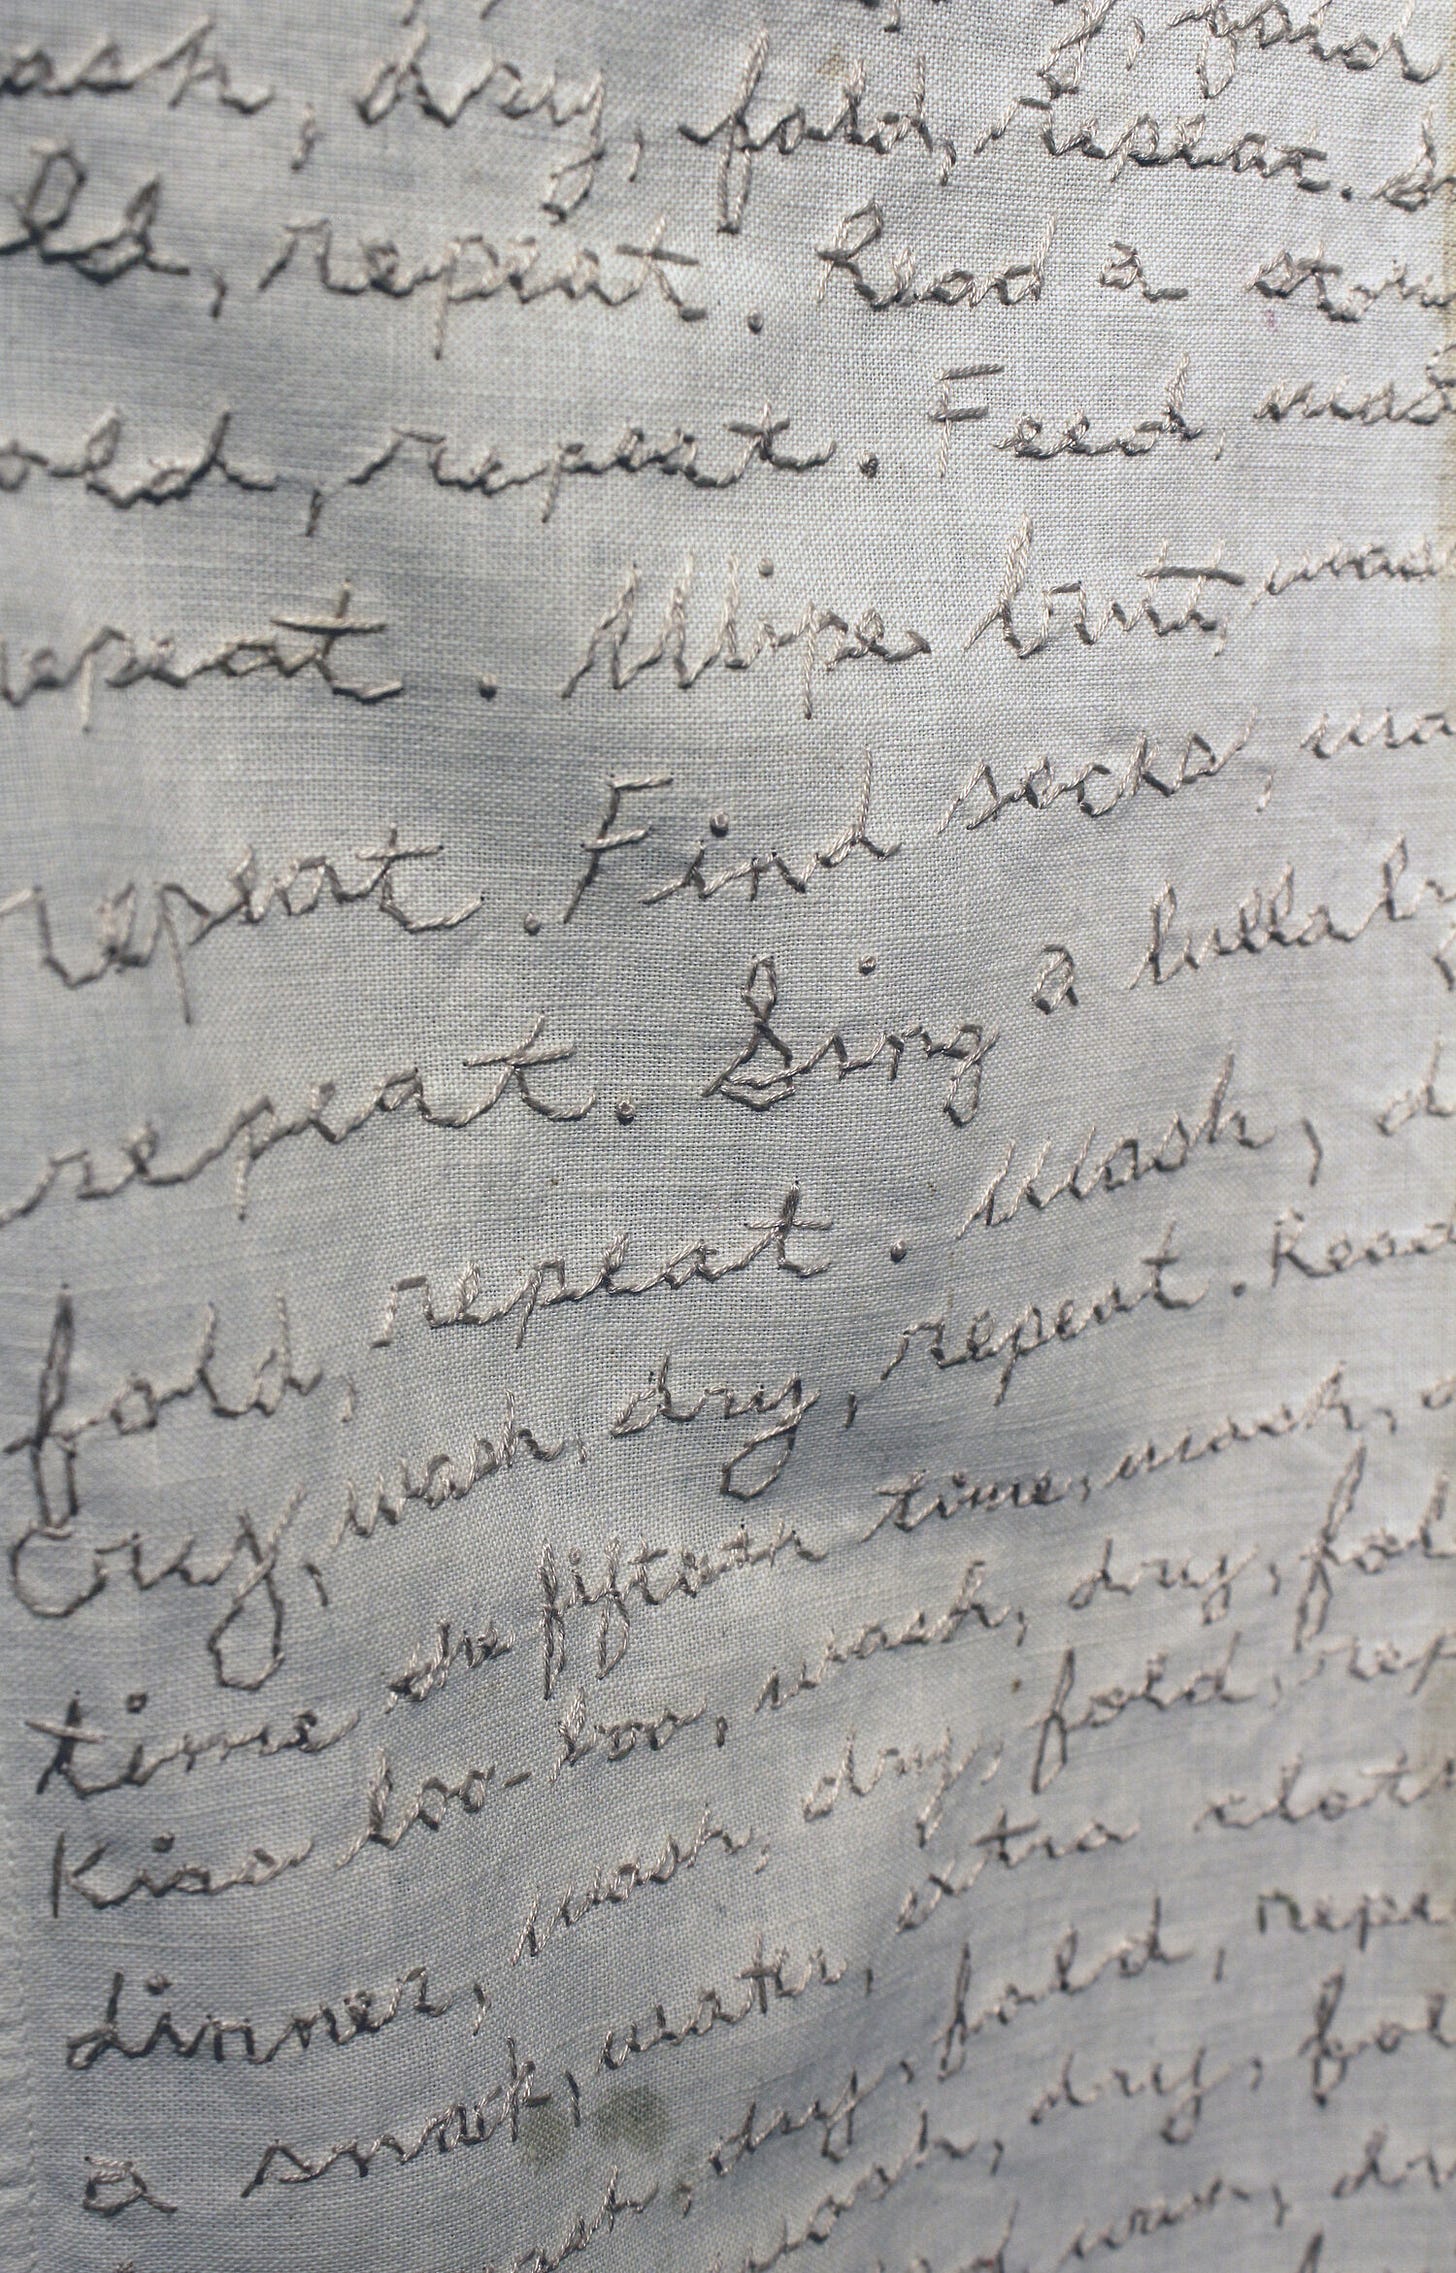 fold
ash, dry, fold, repeat. S
ld, repeat. Read a stor
old, repeat. Feed, was
repeat. Wipe butt, was
repeat. Find socks, wa
repeat. Sing a lullaby
fold, repeat. Wash, d
Cry, wash, dry, repeat. Read
time the fiftieth time, wash, d
Kiss boo-boo, wash, dry, fol
dinner, wash, dry, fold, rep
a snack, water, extra cloth
wash, dry, fold, repe
wash, dry, fol
dr